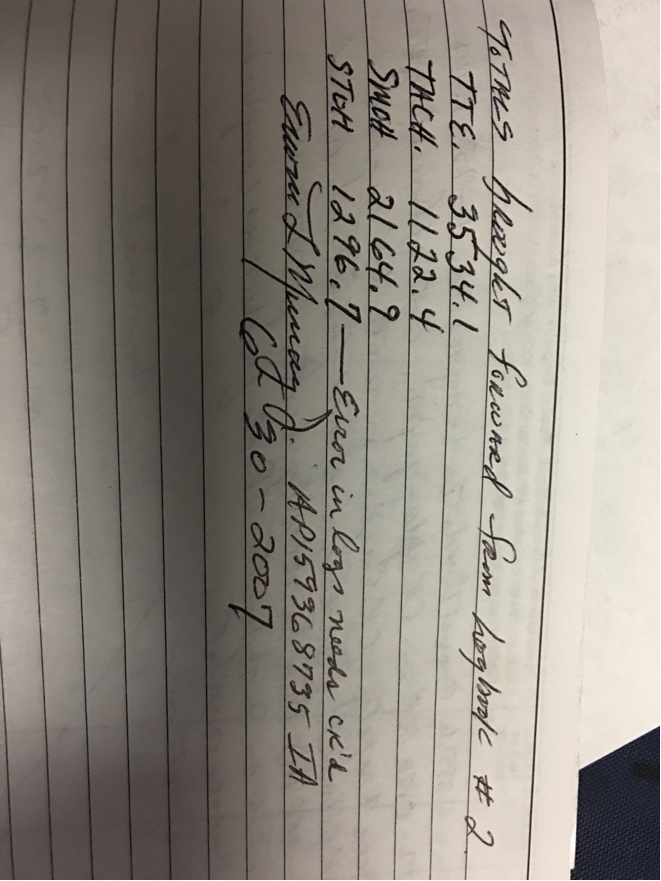 Totals brought forward from logbook # 2
TTE. 3534.1
TACH. 1122.4
SMOH 2164.9
STOH 1296.7 — Error in logs needs ck'd
AP159368735 IA
30-2007